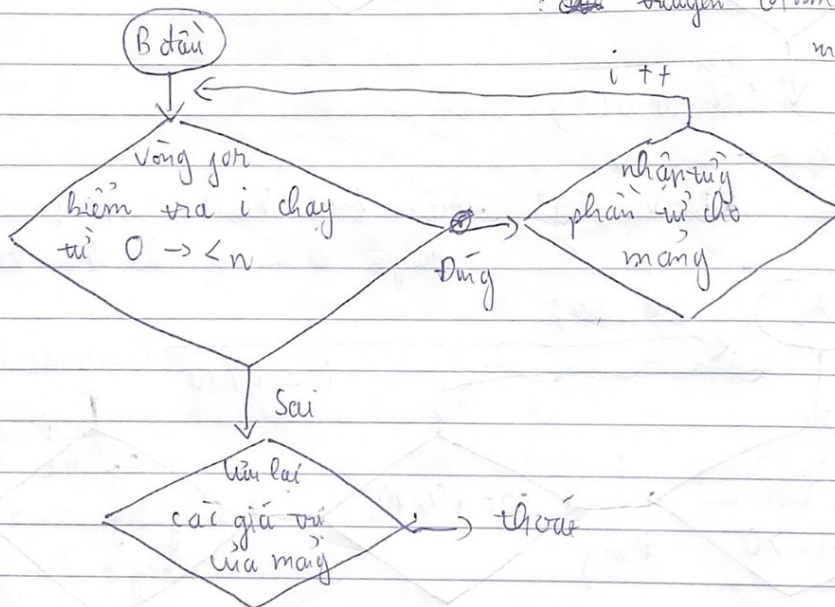 truyền
m
B đầu
i ++
vòng for
kiểm tra i chạy
từ 0 -> < n
nhập từng
phần tử cho
mảng
Đúng
Sai
lưu lại
các giá trị
của mảng
thoát